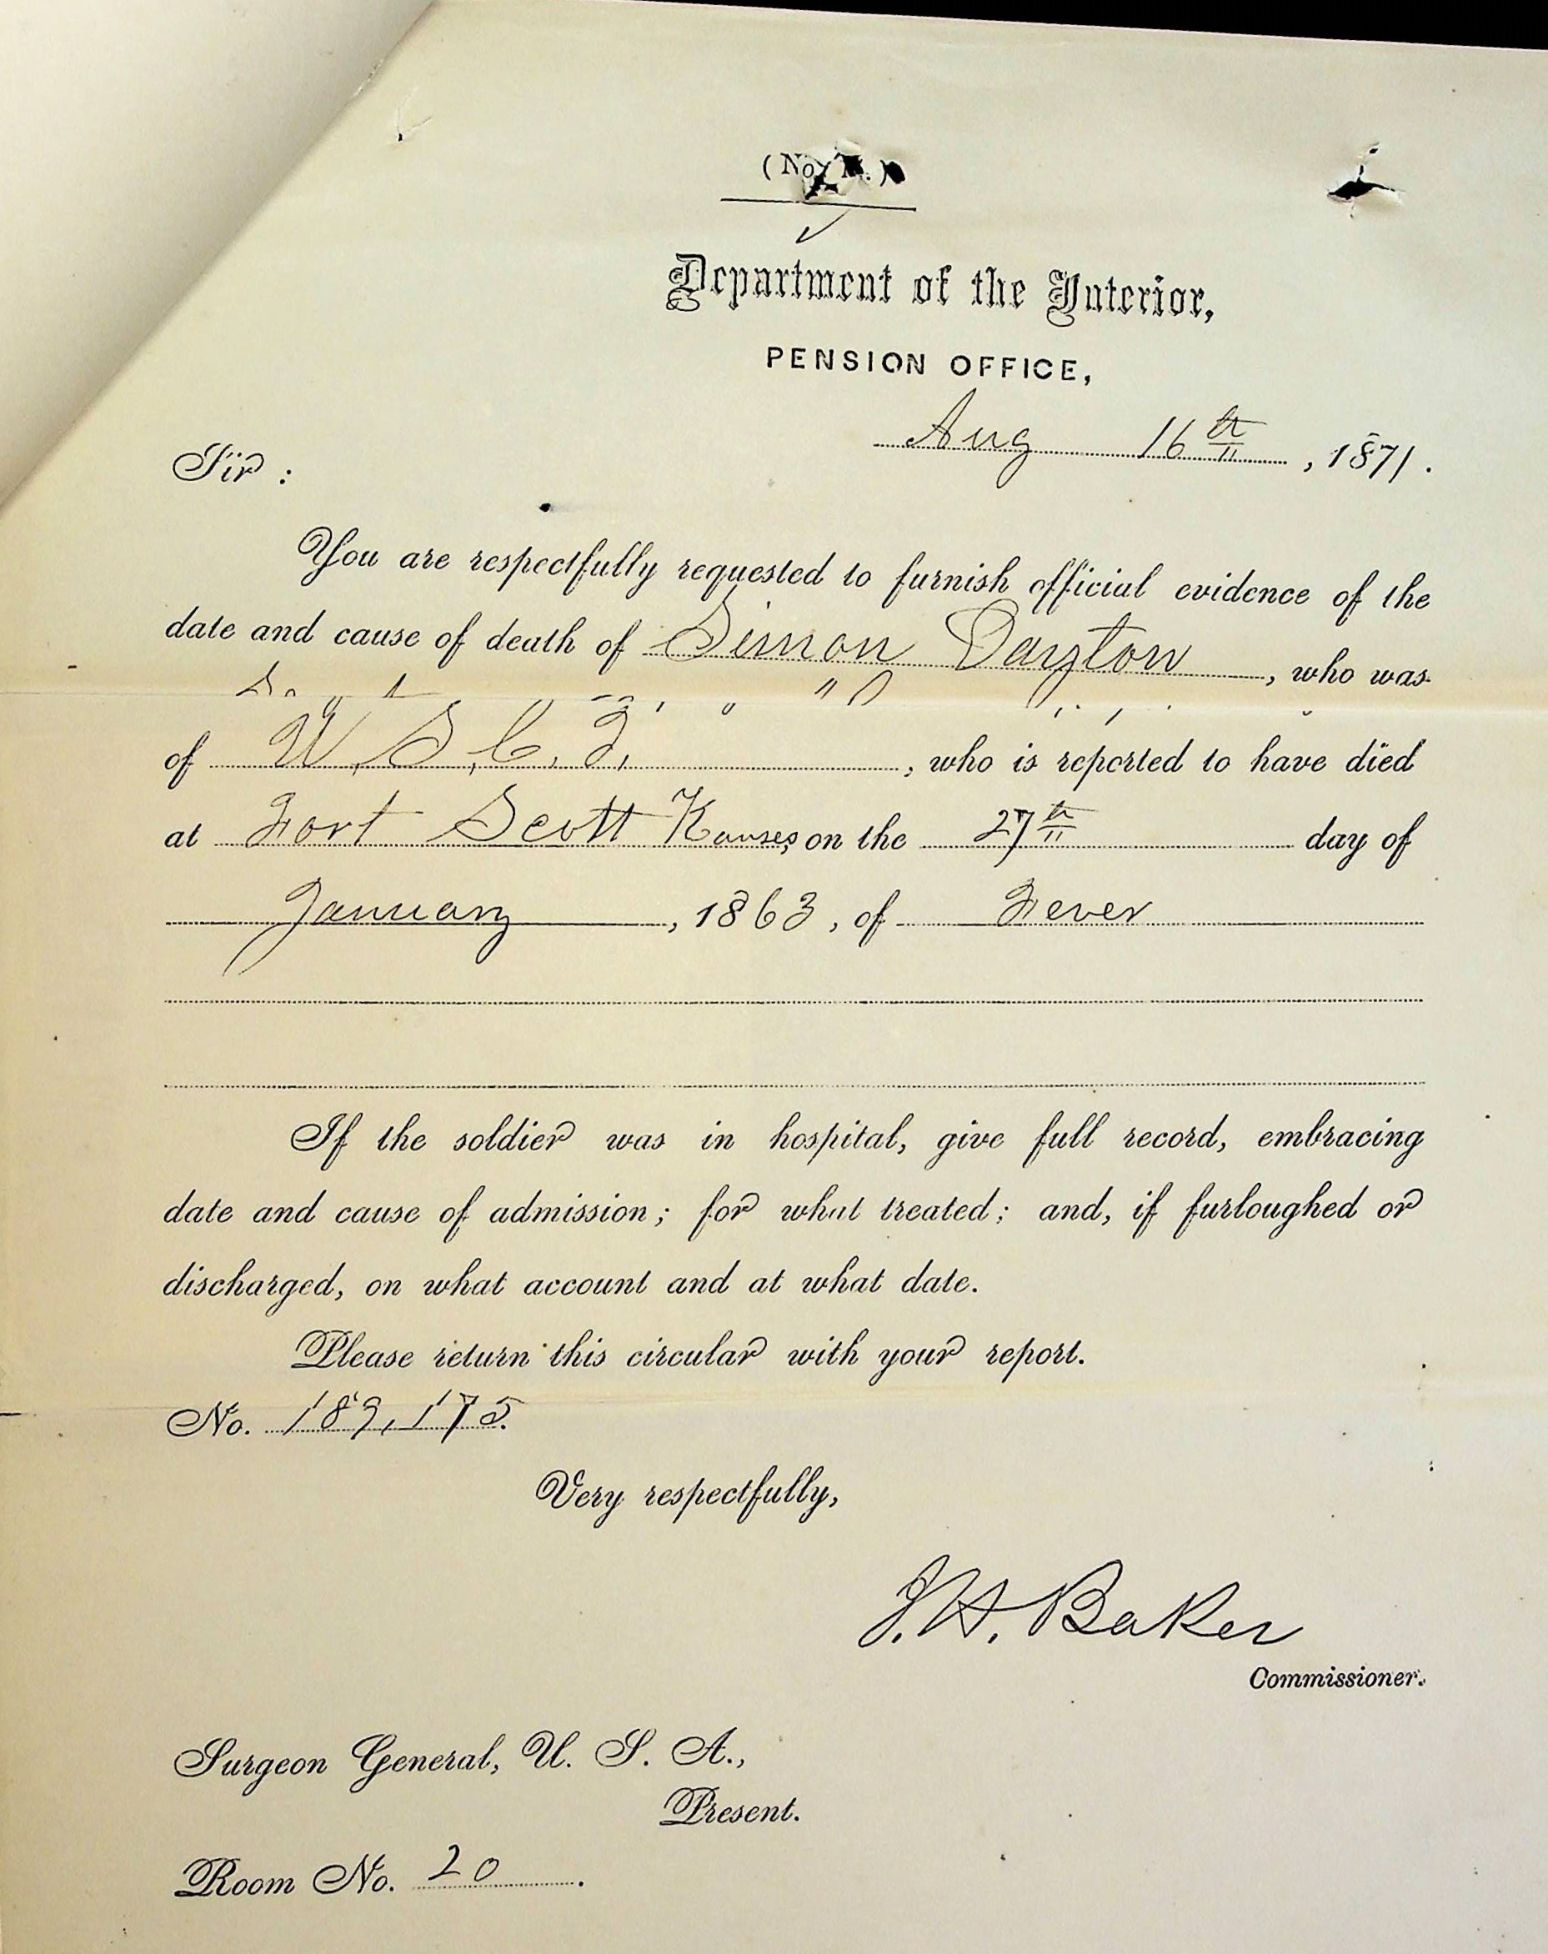 (No.
Department of the Interior,
PENSION OFFICE,
Aug 16th, 1871.
Sir:
You are respectfully requested to furnish official evidence of the
date and cause of death of Simon Dayton, who was
of U.S.C.T., who is reported to have died
at Fort Scott Kanses, on the 27th day of
January, 1863, of Fever
If the soldier was in hospital, give full record, embracing
date and cause of admission; for what treated; and, if furloughed or
discharged, on what account and at what date.
Please return this circular with your report.
No. 189,175.
Very respectfully,
J.H. Baker
Commissioner.
Surgeon General, U. S. A.,
Present.
Room No. 20.